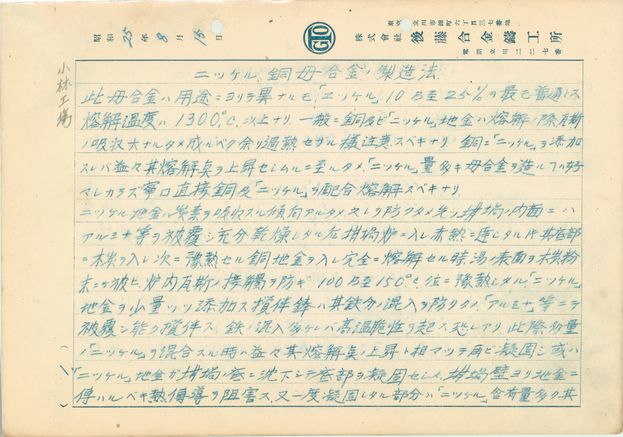 昭和 25 年 8 月 15 日
GTO
東京 立川市錦町六丁目三七番地
株式會社 後藤合金鑄工所
電話立川二二七番
小林工場
ニッケル、銅母合金ノ製造法
此母合金ハ用途ニヨリテ異ナルモ「ニッケル」10 乃至25%ヲ最モ普通トス
熔解温度ハ1300°C.以上ナリ.一般ニ銅及ビ「ニッケル」地金ハ熔解ノ際瓦斯
ノ吸収大ナルタメ成ルベク余リ過熱セザル様注意スベキナリ 銅ニ「ニッケル」ヲ添加
スレバ益々其熔解点ヲ上昇セシムルニ至ルタメ「ニッケル」量多キ母合金ヲ造ルハ好
マシカラズ寧ロ直接銅及「ニッケル」ヲ配合熔解スベキナリ
ニッケル地金ハ炭素ヲ吸収スル傾向アルタメ之レヲ防グタメ先ヅ坩堝ノ内面ニハ
アルミナ等ヲ被覆シ充分乾燥シタル后坩堝炉ニ入レ赤熱ニ達シタル時其底部
ニ木炭ヲ入レ次ニ豫熱セル銅地金ヲ入レ完全ニ熔解セル時湯ノ表面ヲ木炭粉
末ニテ被ヒ炉内瓦斯ノ接觸ヲ防ギ 100乃至150°C.位ニ豫熱シタル「ニッケル」
地金ヲ少量ヅツ添加ス 攪伴鋒ハ其鉄分ノ混入ヲ防グタメ「アルミナ」等ニテ
被覆シ能ク攪伴ス 鉄ノ混入多ケレバ高温脆性ヲ起ス恐レアリ.此際多量
ノ「ニッケル」ヲ混合スル時ハ益々其熔解点ノ上昇ト相マツテ再ビ凝固シ或ハ
「ニッケル」地金ガ坩堝ノ底ニ沈下シテ底部ヲ凝固セシメ、坩堝壁ヨリ地金ニ
傳ハルベキ熱傳導ヲ阻害ス.又一度凝固シタル部分ハ「ニッケル」含有量多ク其